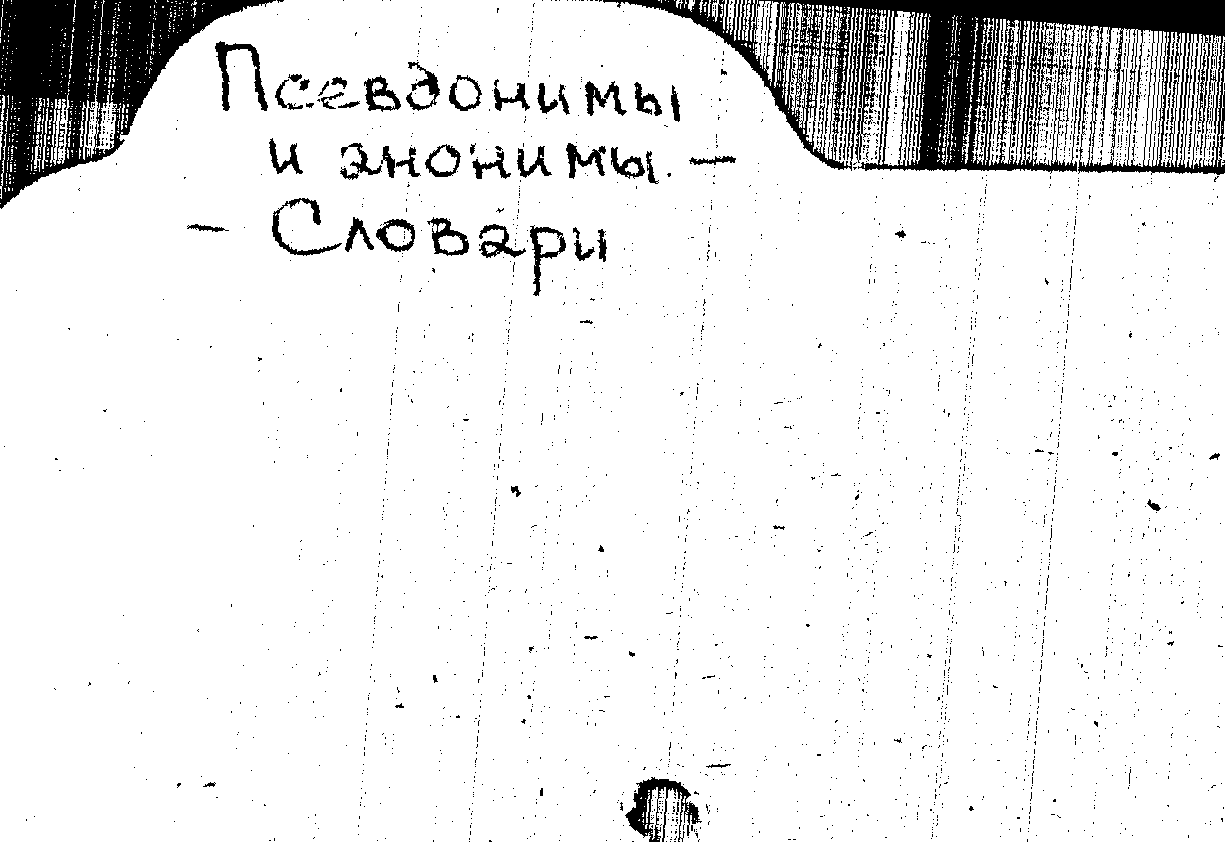 Псевдонимы
и анонимы. —
— Словари